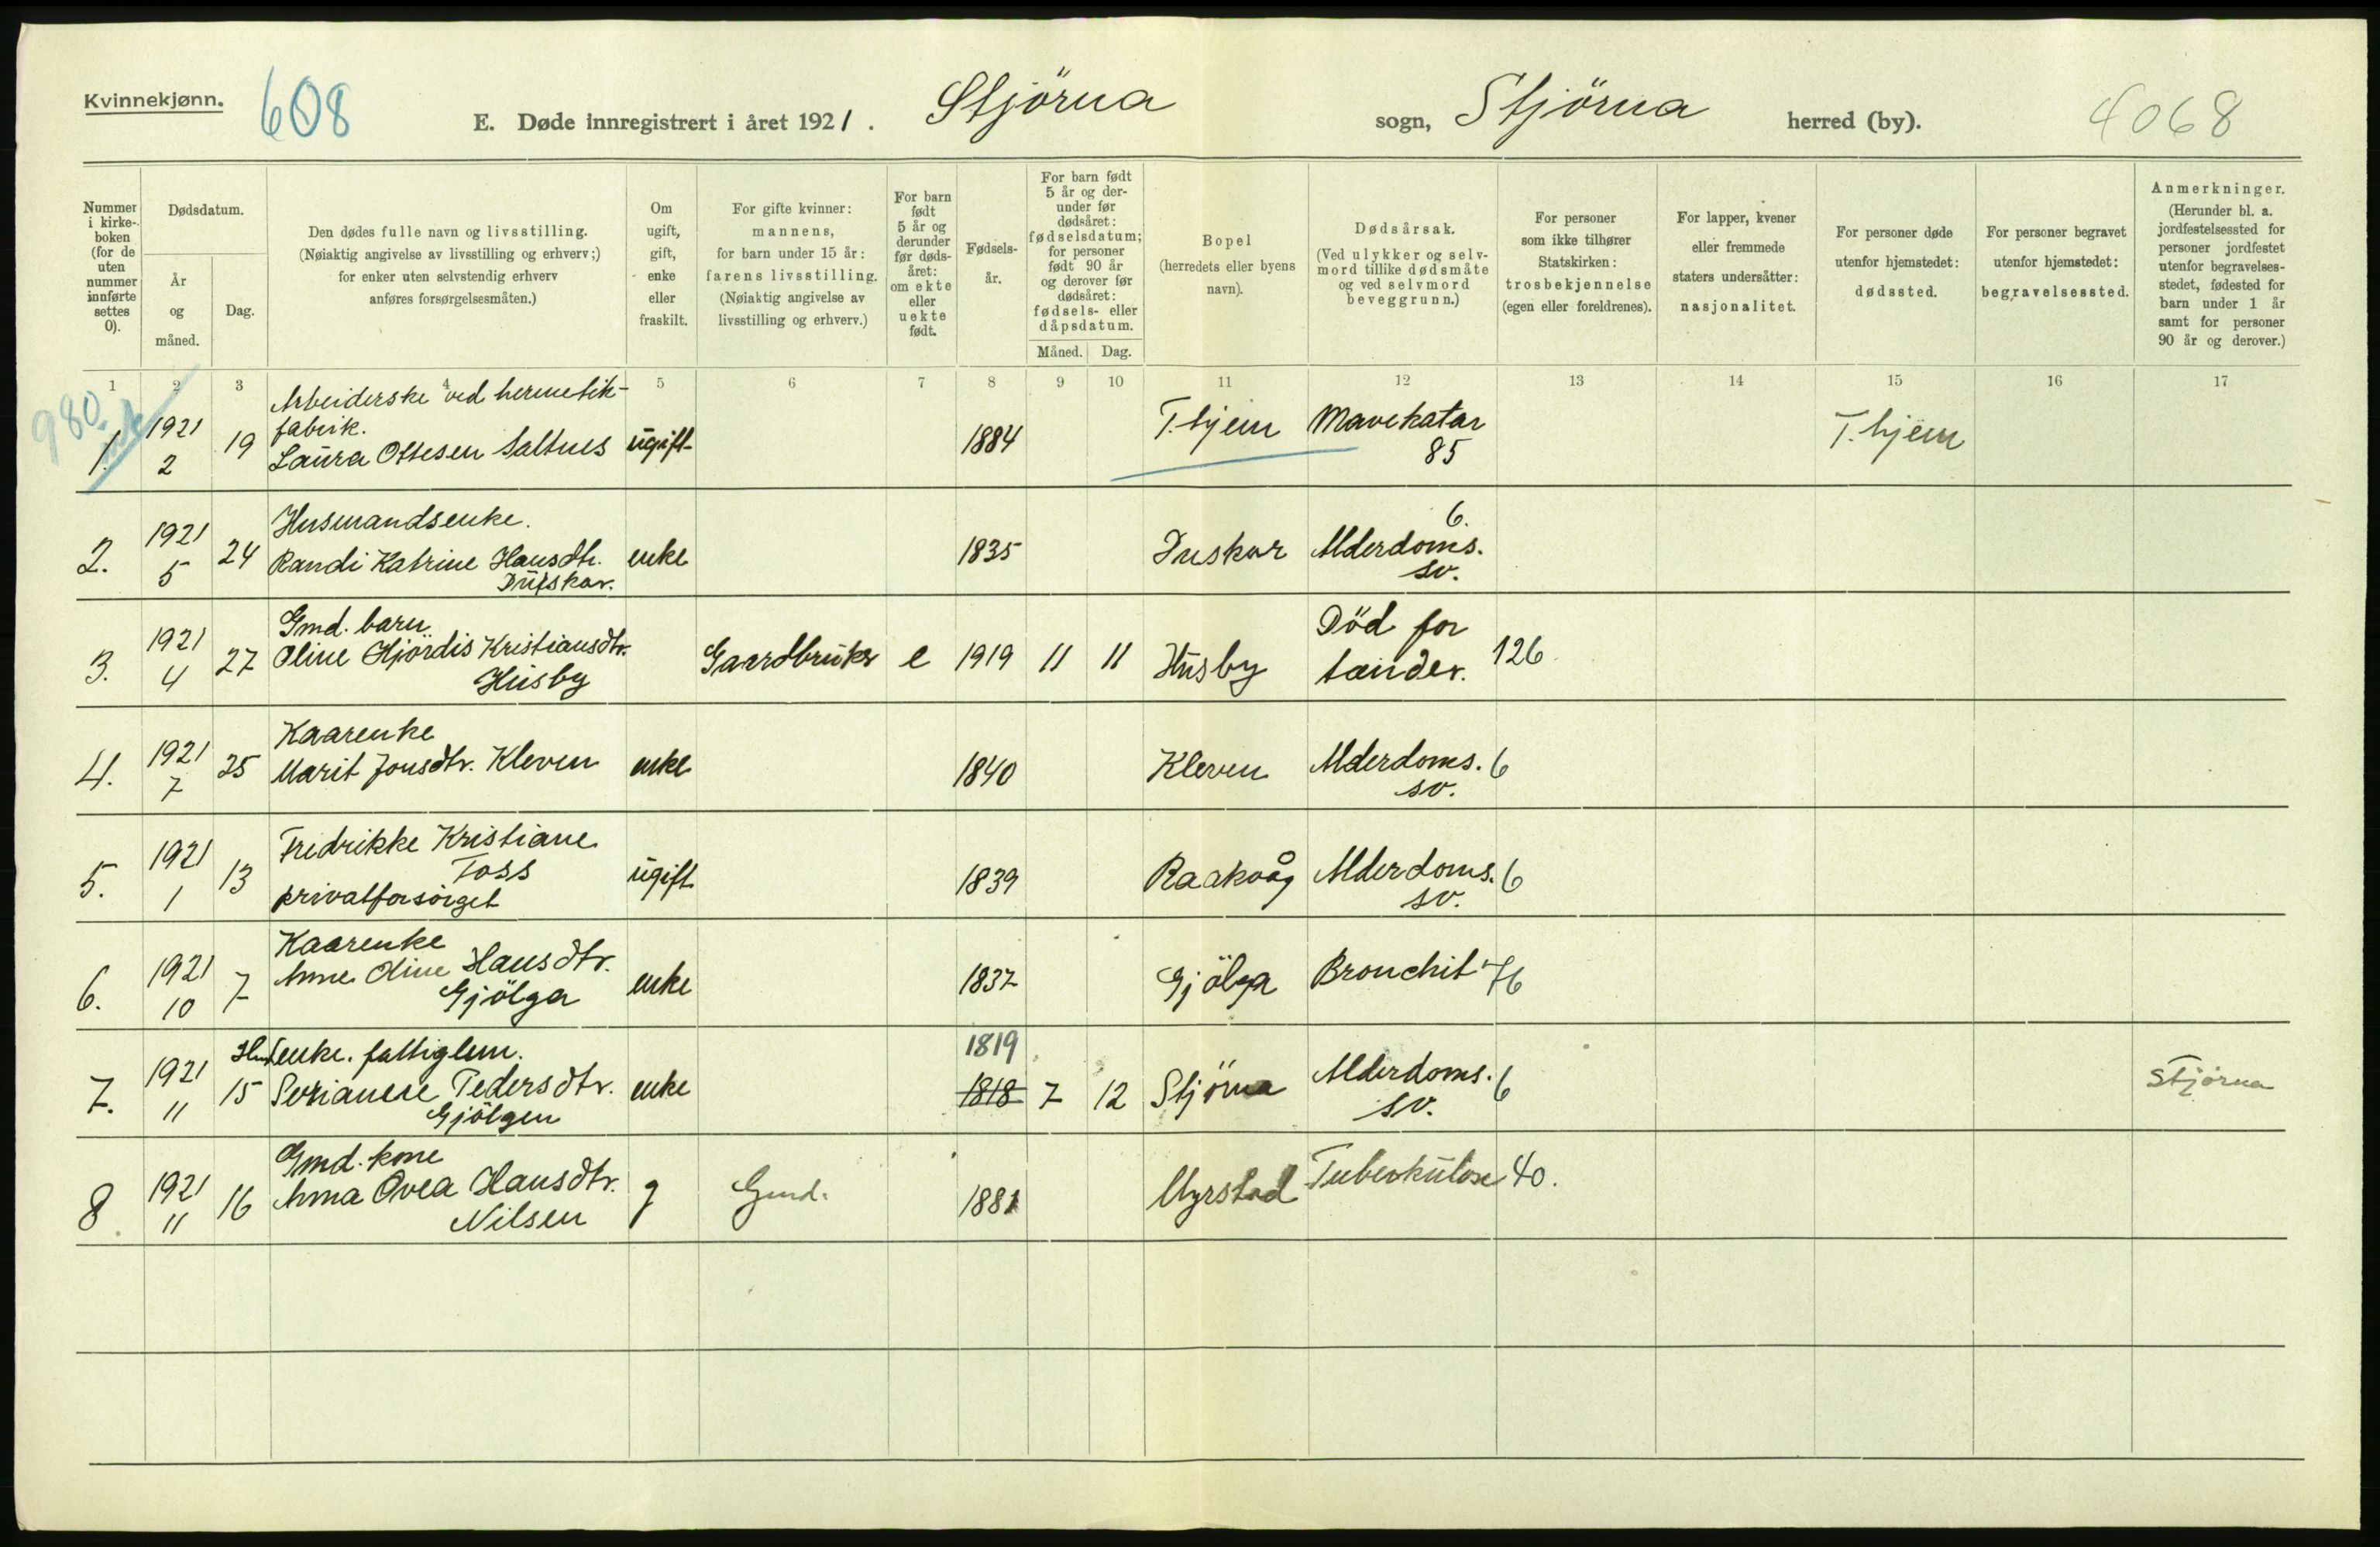 Kvinnekjønn.
608
E. Døde innregistrert i året 1921.
Stjörna sogn, Stjörna herred (by).
4068
Nummer i kirkeboken (for de uten nummer innførte settes 0).
Dødsdatum.
År og måned.
Dag.
Den dødes fulle navn og livsstilling.
(Nøiaktig angivelse av livsstilling og erhverv;)
for enker uten selvstendig erhverv
anføres forsørgelsesmåten.)
Om ugift, gift, enke eller fraskilt.
For gifte kvinner: mannens, for barn under 15 år: farens livsstilling. (Nøiaktig angivelse av livsstilling og erhverv.)
For barn født 5 år og derunder før dødsåret: om ekte eller uekte født.
Fødselsår.
For barn født 5 år og derunder før dødsåret: fødselsdatum; for personer født 90 år og derover før dødsåret: fødsels- eller dåpsdatum.
Måned. Dag.
Bopel (herredets eller byens navn).
Dødsårsak. (Ved ulykker og selvmord tillike dødsmåte og ved selvmord beveggrunn.)
For personer som ikke tilhører Statskirken: trosbekjennelse (egen eller foreldrenes).
For lapper, kvener eller fremmede staters undersåtter: nasjonalitet.
For personer døde utenfor hjemstedet: dødssted.
For personer begravet utenfor hjemstedet: begravelsessted.
Anmerkninger. (Herunder bl. a. jordfestelsessted for personer jordfestet utenfor begravelsesstedet, fødested for barn under 1 år samt for personer 90 år og derover.)
1 2 3 4 5 6 7 8 9 10 11 12 13 14 15 16 17
980
1. 1921 2 19 Arbeiderske ved hermetik-
fabrik.
Laura Ottesen Saltnes ugift 1884 T.hjem Mavekatar 85 T.hjem
2. 1921 5 24 Husmandsenke.
Randi Katrine Hansdtr. enke 1835 Duskar Alderdoms. sv. 6.
3. 1921 4 27 Gmd. barn
Oline Hjördis Kristiansdtr.
Husby Gaardbruker e 1919 11 11 Husby Död for tænder. 126
4. 1921 7 25 Kaarenke
Marit Jonsdtr. Kleven enke 1840 Kleven Alderdoms. sv. 6
5. 1921 1 13 Fredrikke Kristiane
Foss
privatforsörget ugift 1839 Raakvåg Alderdoms. sv. 6
6. 1921 10 7 Kaarenke
Anne Oline Hansdtr.
Gjölga enke 1837 Gjölga Bronchit 76
7. 1921 11 15 enke. fattiglem.
Serianne Pedersdtr.
Gjölgen enke 1819 1818 7 12 Stjörna Alderdoms. sv. 6 Stjörna
8. 1921 11 16 Gmd. kone
Anna Ovea Hansdtr.
Nilsen g Gmd. 1881 Myrstad Tuberkulose 40.